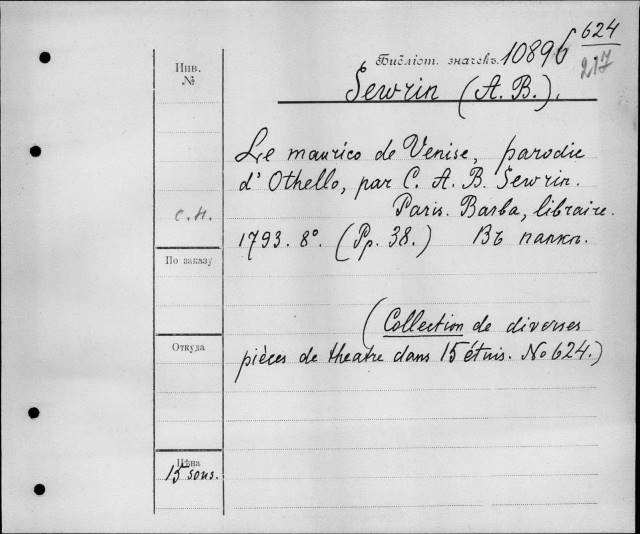 Инв. №
Библіот. значекъ. 10896 624
217
Sewrin (A. B.).
Le maurico de Venise, parodie
d'Othello, par C. A. B. Sewrin.
Paris. Barba, libraire.
с.н.
1793. 8°. (Pp. 38.) Въ папкѣ.
По заказу
(Collection de diverses
Откуда
pièces de theatre dans 15 étuis. No 624.)
Цѣна
15 sous.